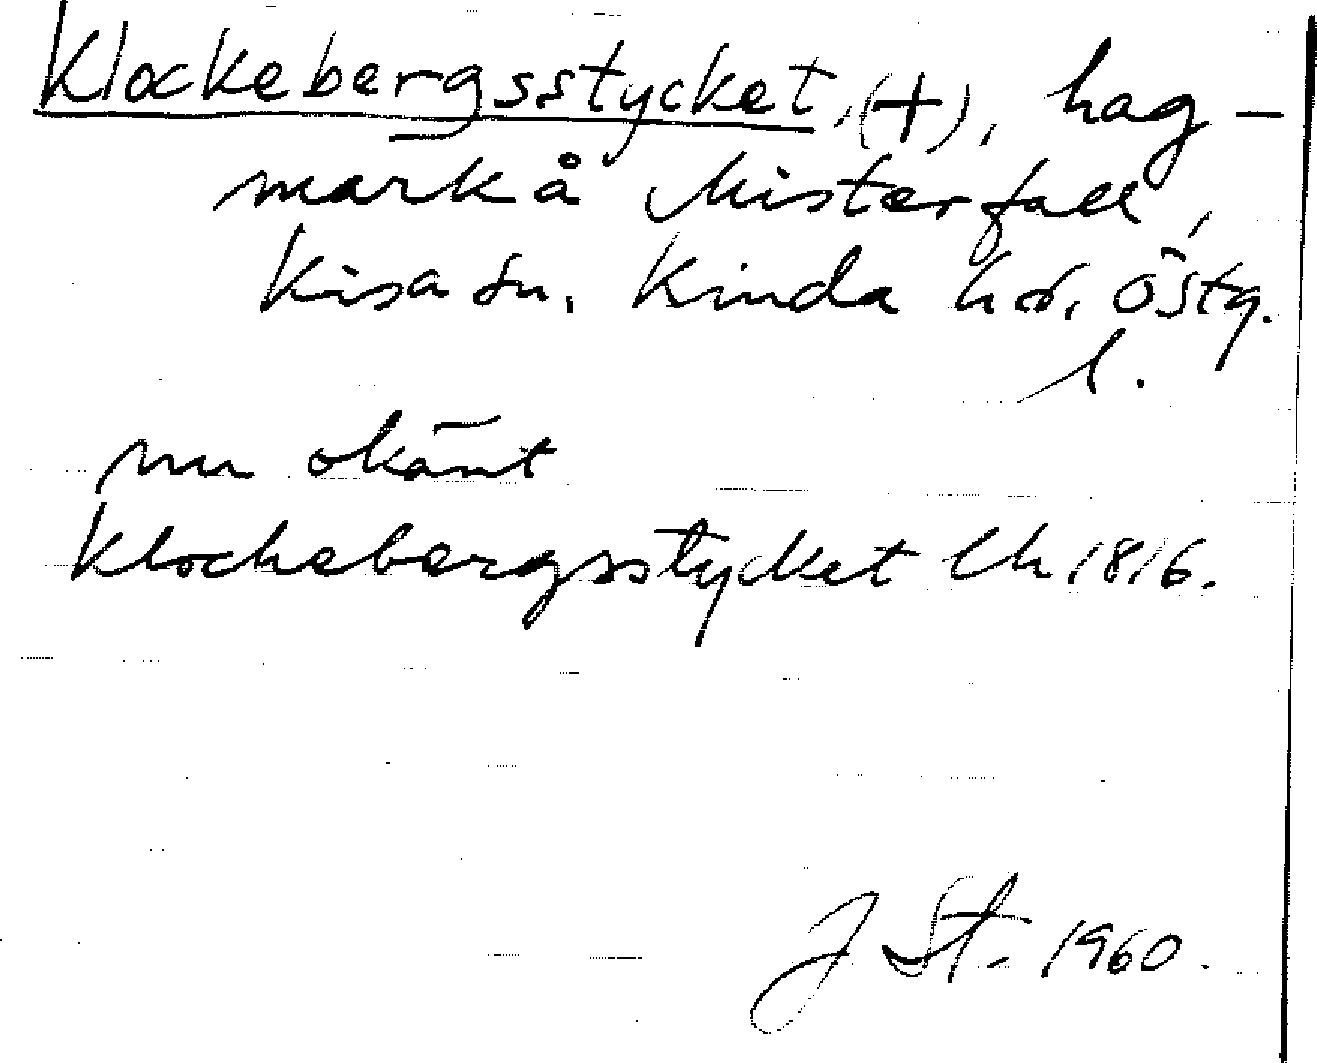 Klockebergsstycket, (+), hag-
mark å Misterfall,
Kisa sn. Kinda hd, Östg.
l.
nu okänt
Klockebergsstycket Lh 1816.
J St. 1960.